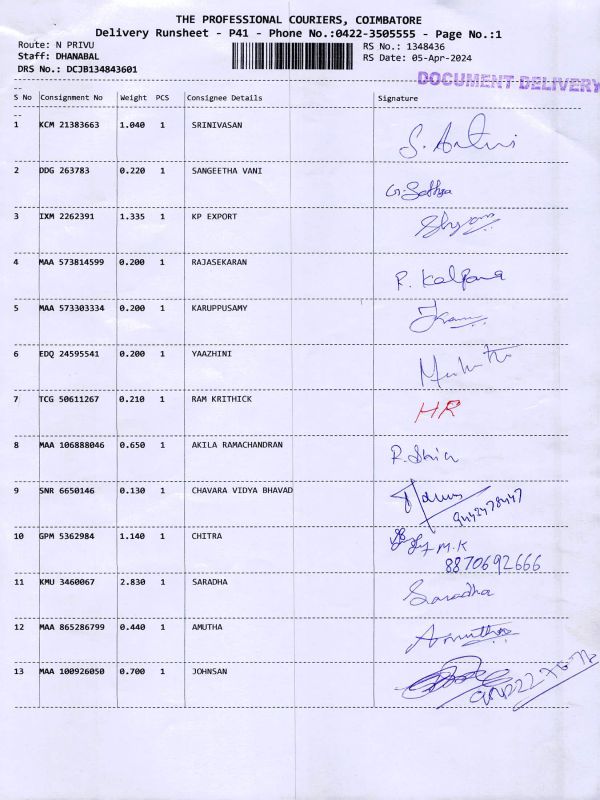 THE PROFESSIONAL COURIERS, COIMBATORE
Delivery Runsheet - P41 - Phone No.:0422-3505555 - Page No.:1
Route: N PRIVU RS No.: 1348436
Staff: DHANABAL RS Date: 05-Apr-2024
DRS No.: DCJB134843601
DOCUMENT DELIVERY
S No Consignment No Weight PCS Consignee Details Signature
1 KCM 21383663 1.040 1 SRINIVASAN
2 DDG 263783 0.220 1 SANGEETHA VANI G. Sathya
3 IXM 2262391 1.335 1 KP EXPORT Shyam
4 MAA 573814599 0.200 1 RAJASEKARAN R. Kalpana
5 MAA 573303334 0.200 1 KARUPPUSAMY
6 EDQ 24595541 0.200 1 YAAZHINI
7 TCG 50611267 0.210 1 RAM KRITHICK HR
8 MAA 106888046 0.650 1 AKILA RAMACHANDRAN
9 SNR 6650146 0.130 1 CHAVARA VIDYA BHAVAD
10 GPM 5362984 1.140 1 CHITRA M.K
8870692666
11 KMU 3460067 2.830 1 SARADHA Saradha
12 MAA 865286799 0.440 1 AMUTHA Amutha
13 MAA 100926050 0.700 1 JOHNSAN